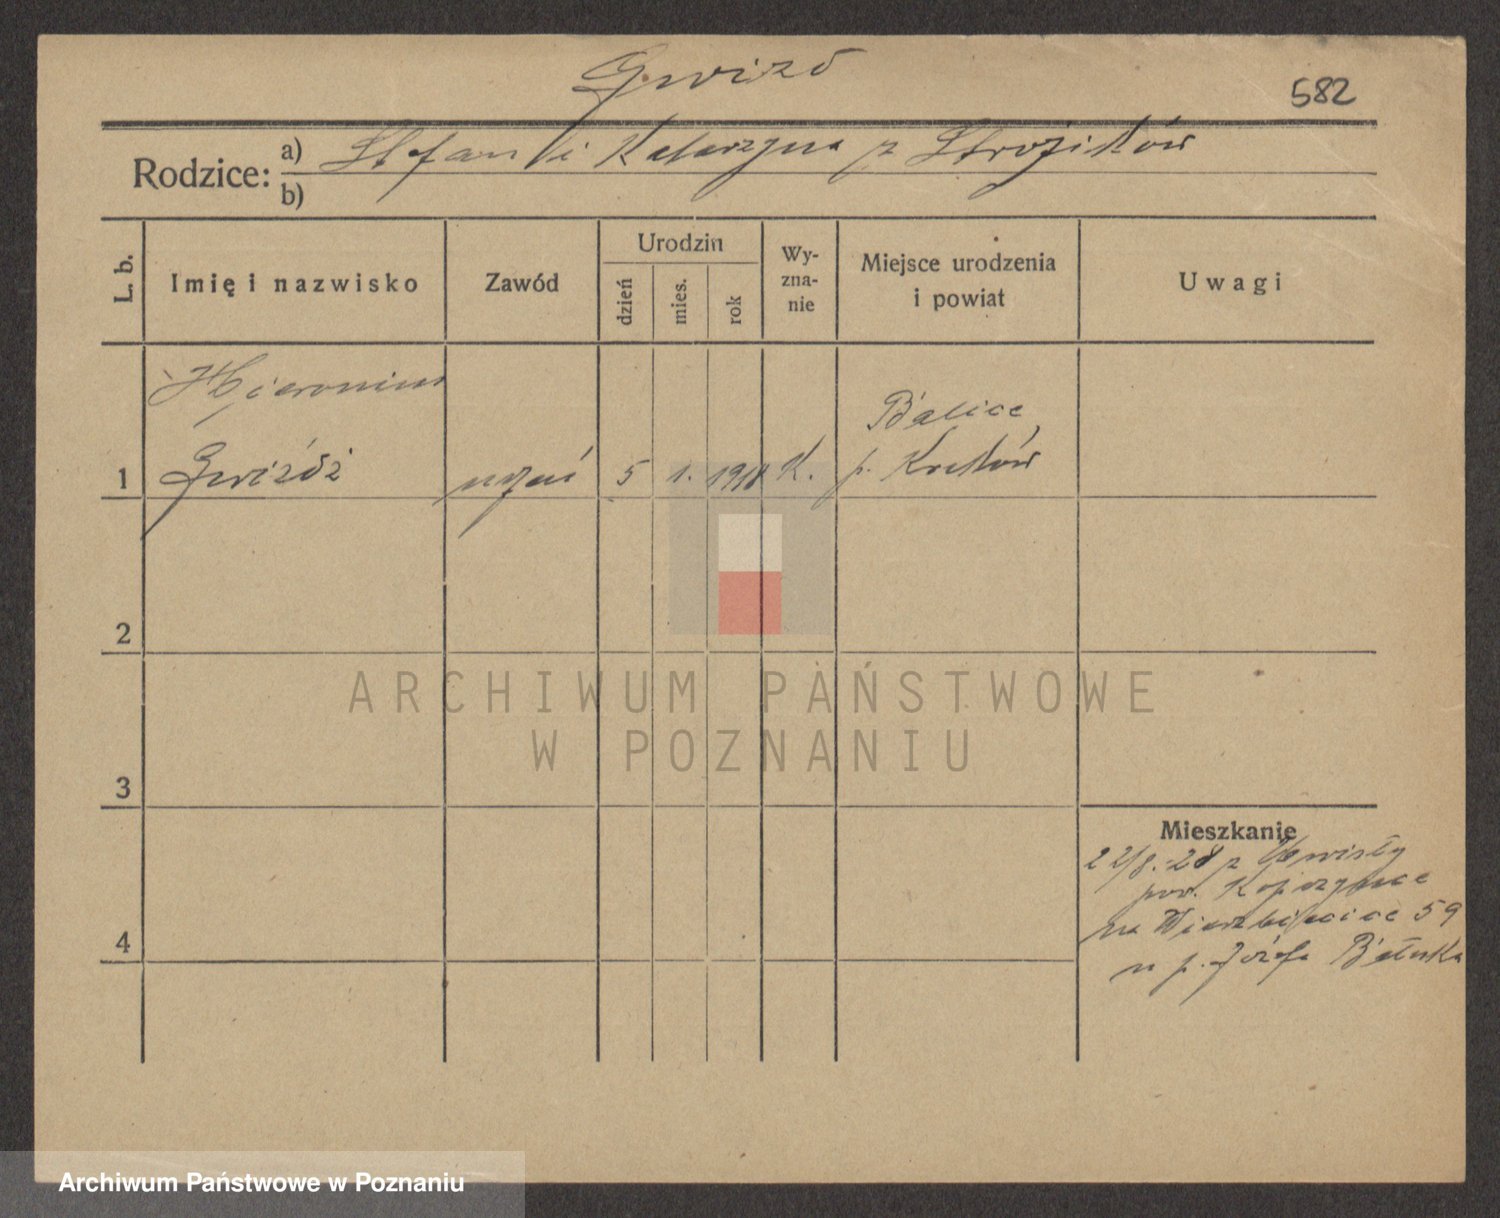 Gwizd
582
Rodzice: a) Stefan i Katarzyna z Strojików
b)
L. b. Imię i nazwisko Zawód Urodzin dzień mies. rok Wyzna-nie Miejsce urodzenia i powiat Uwagi
Hieronim
Balice,
1 Gwiżdż uczeń 5 1. 1918 K. p. Kraków
2
ARCHIWUM PAŃSTWOWE
W POZNANIU
3
Mieszkanie
22/8.-28 z
pow.
4 na Wierzbięcice 59
u p. Józefa
Archiwum Państwowe w Poznaniu